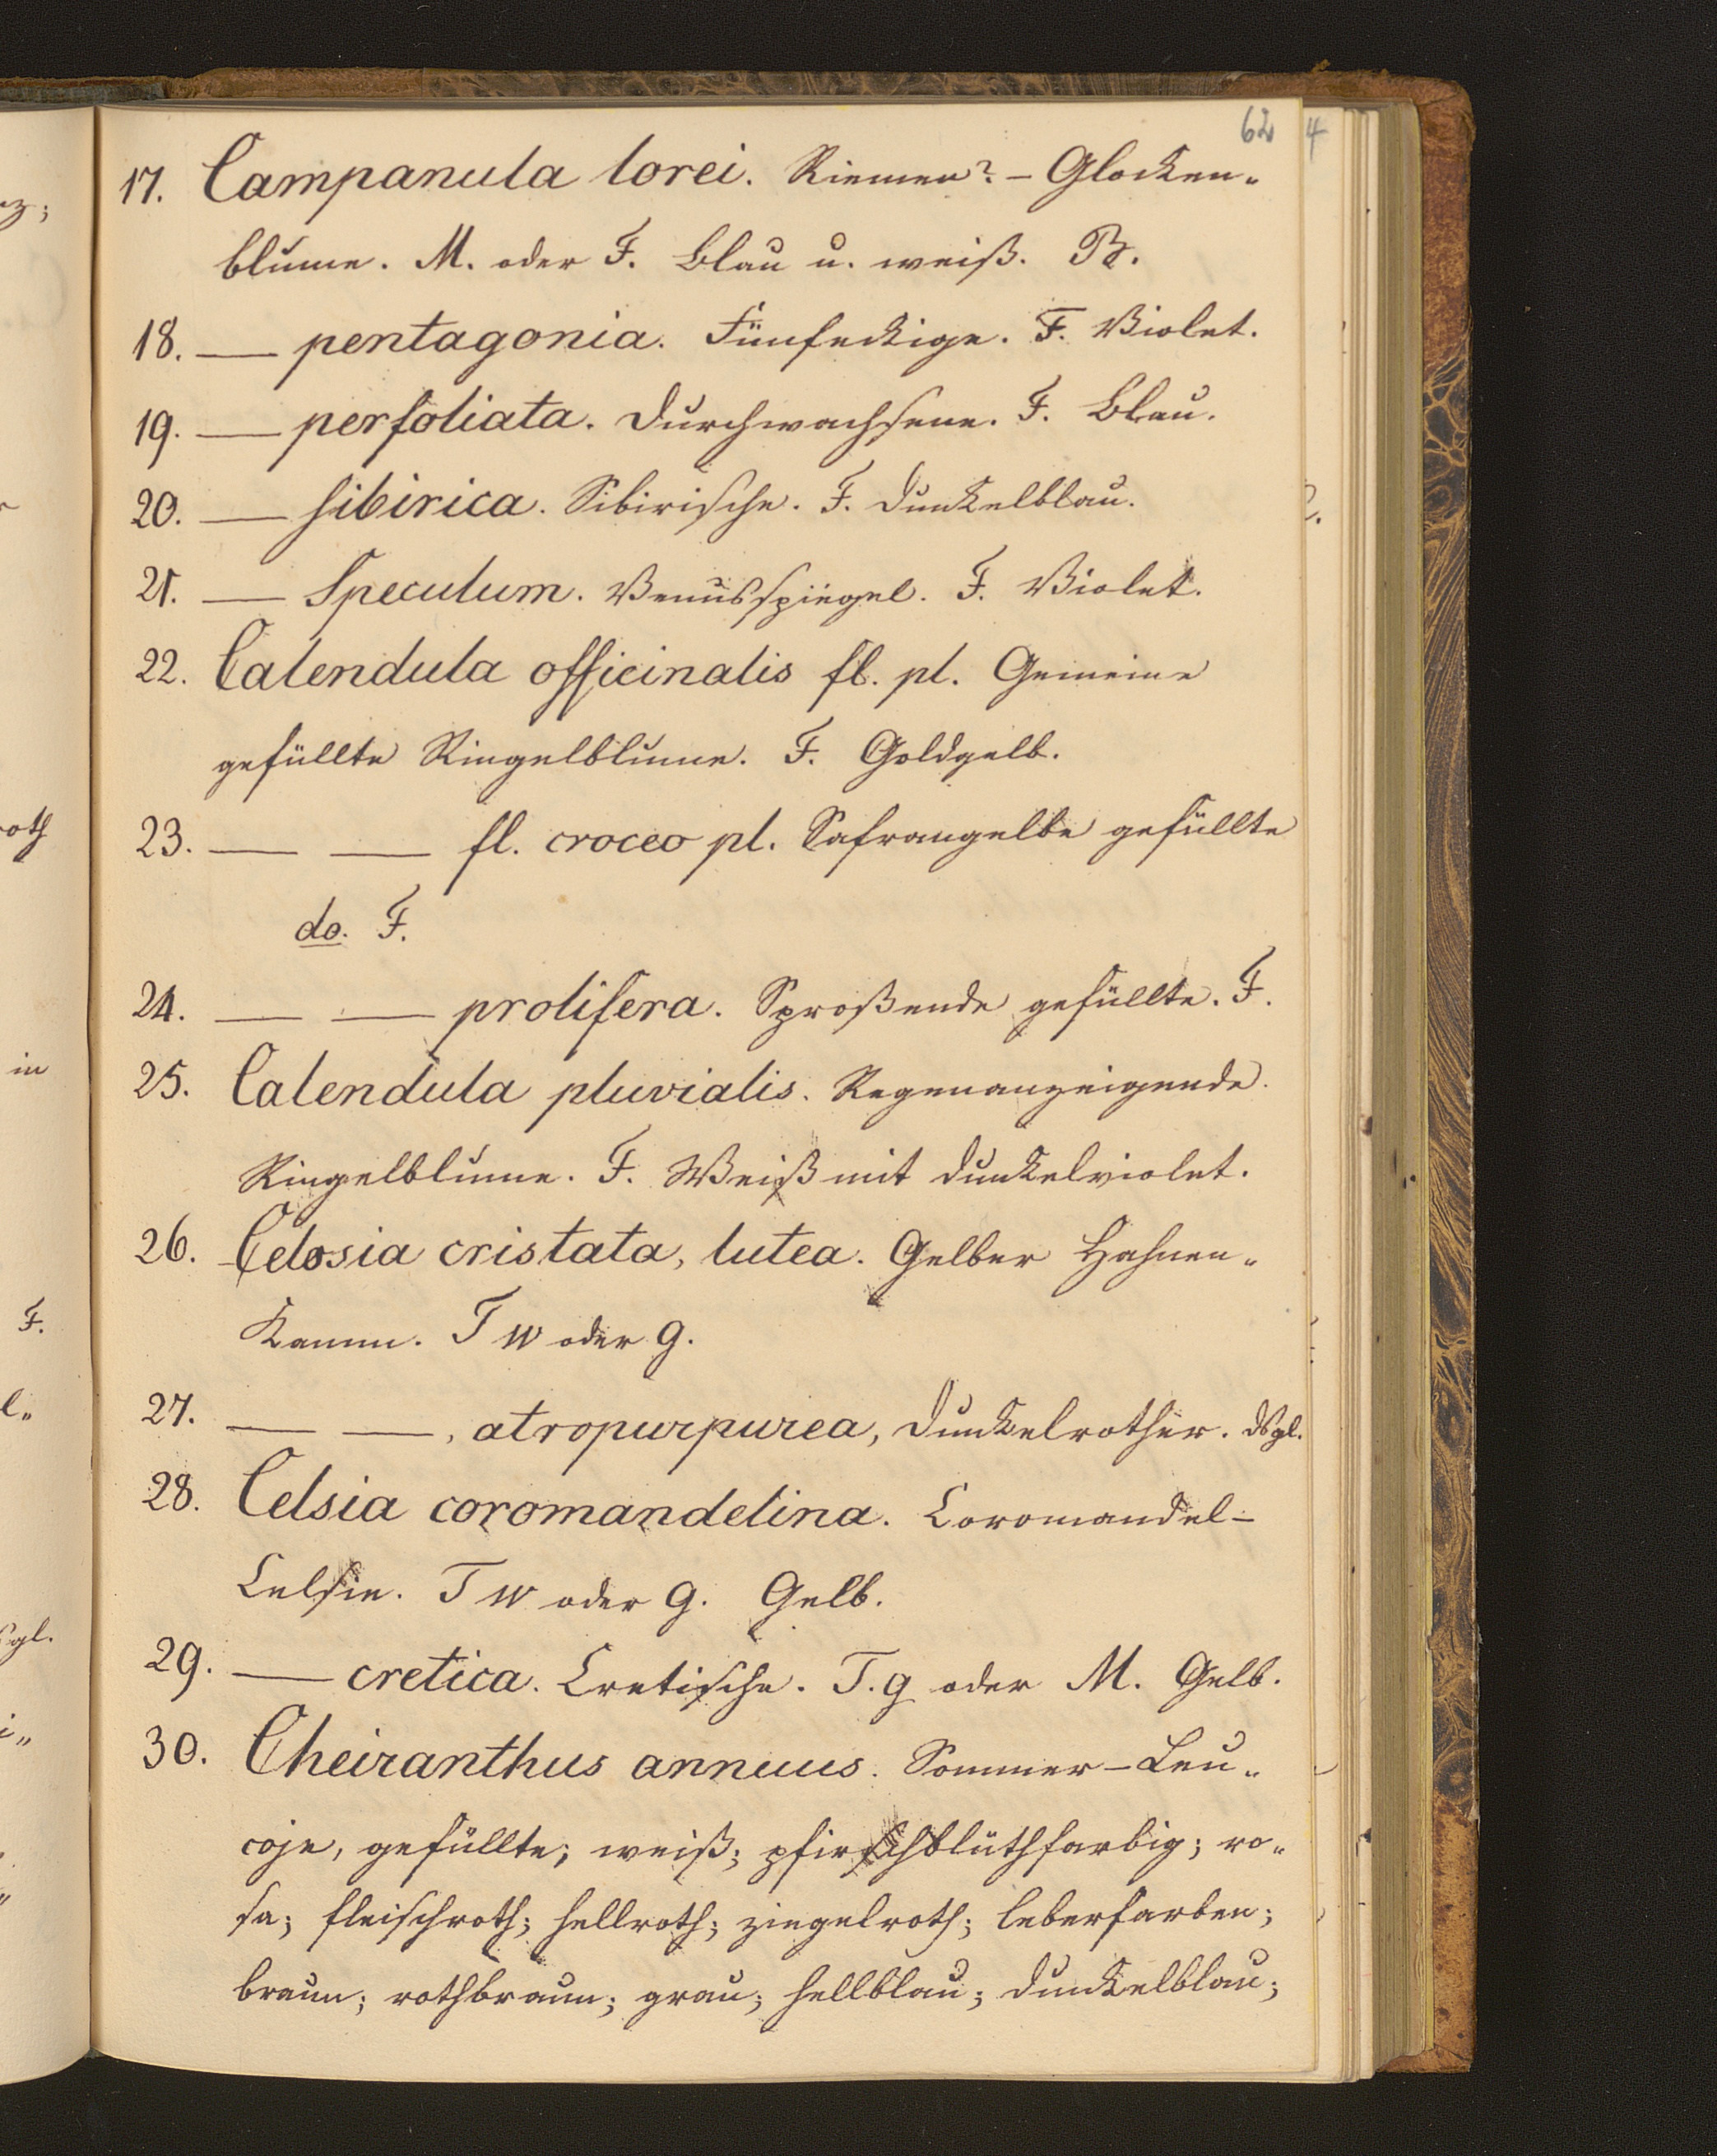 62
17. Campanula lorei. Riemen? – Glocken„
blume. M. oder F. Blau u. weiß. Br.
18. — pentagonia. Fünfeckige. F. Violet.
19. — perfoliata. Durchwachsene. F. Blau.
20. — sibirica. Sibirische. F. Dunkelblau.
21. — Speculum. Venusspiegel. F. Violet.
22. Calendula officinalis fl. pl. Gemeine
gefüllte Ringelblume. F. Goldgelb.
23. — — fl. croceo pl. Safrangelbe gefüllte
do. F.
24. — — prolifera. Sproßende gefüllte. F.
25. Calendula pluvialis. Regenanzeigende
Ringelblume. F. Weiß mit dunkelviolet.
26. Celosia cristata, lutea. Gelber Hahnen„
kamm. T w oder g.
27. — —, atropurpurea, Dunkelrother. dsgl.
28. Celsia coromandelina. Coromandel–
Celsie. T w oder g. Gelb.
29. — cretica. Cretische. T. g oder M. Gelb.
30. Cheiranthus annuus. Sommer–Leu„
coje, gefüllte; weiß; pfirsichblüthfarbig; ro„
sa; fleischroth; hellroth; ziegelroth; leberfarben;
braun; rothbraun; grau; hellblau; dunkelblau;